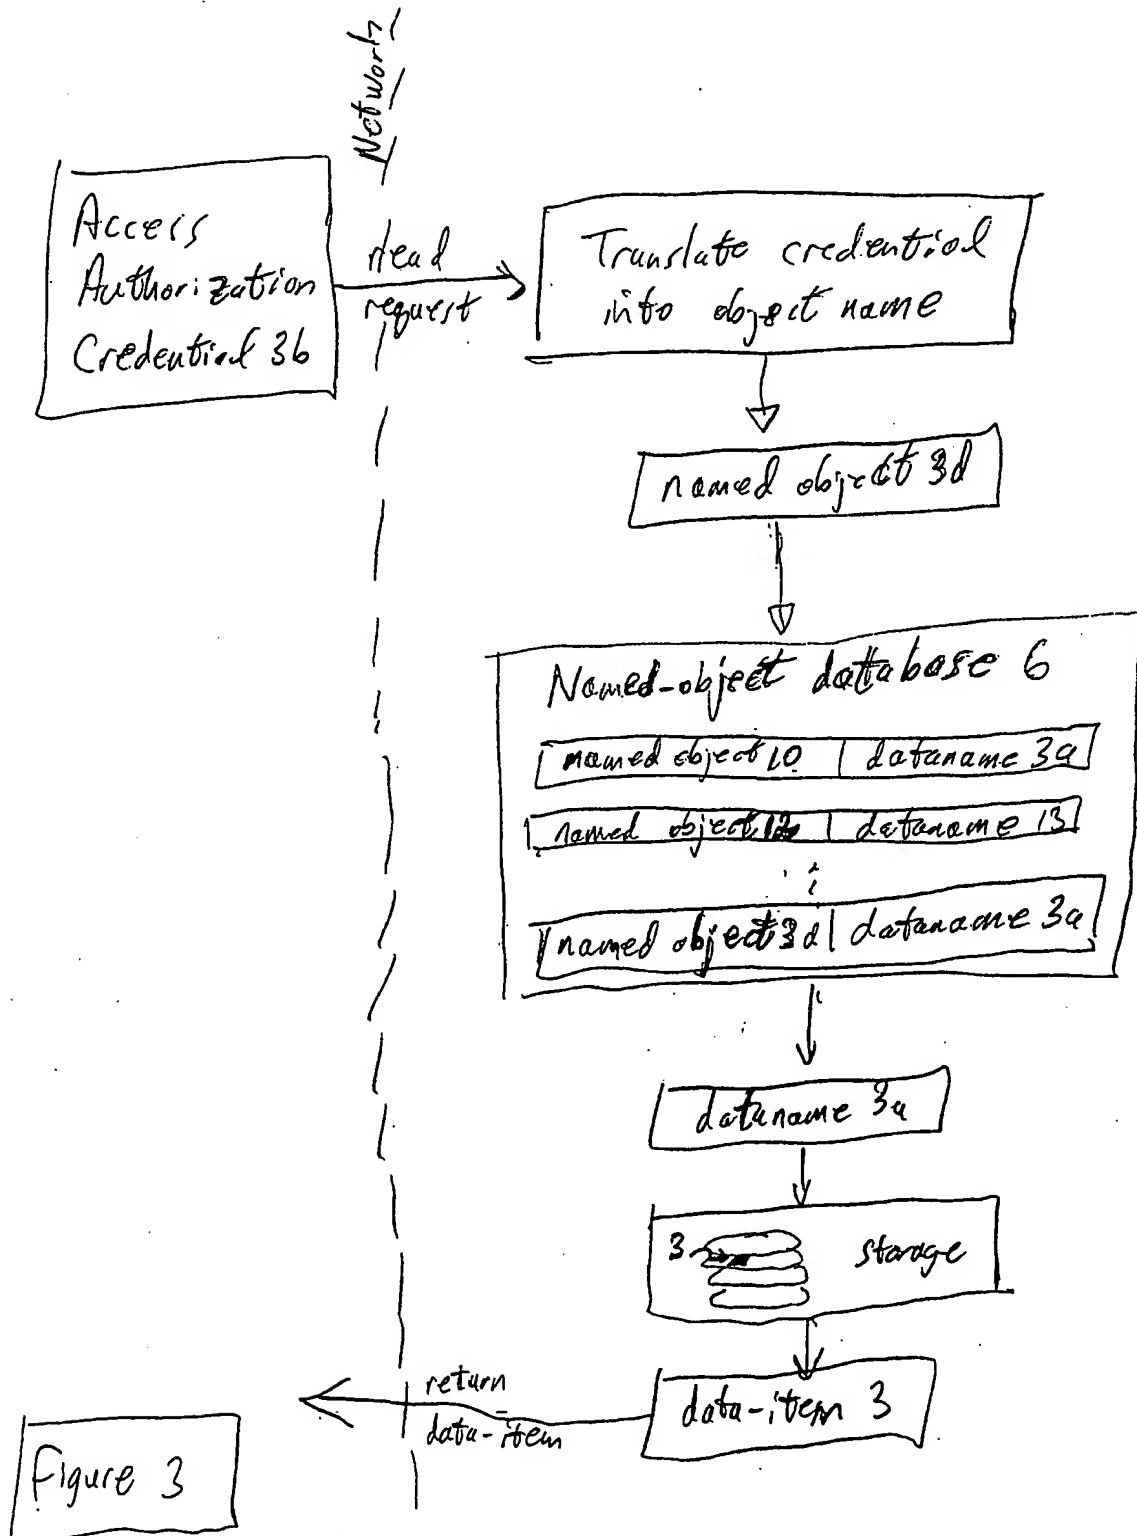 Network
Access
Authorization
Credential 3b
read
request
Translate credential
into object name
named object 3d
Named-object database 6
named object 10 | dataname 3a
named object | dataname 13
named object 3d | dataname 3a
dataname 3a
3
storage
return
data-item
data-item 3
Figure 3